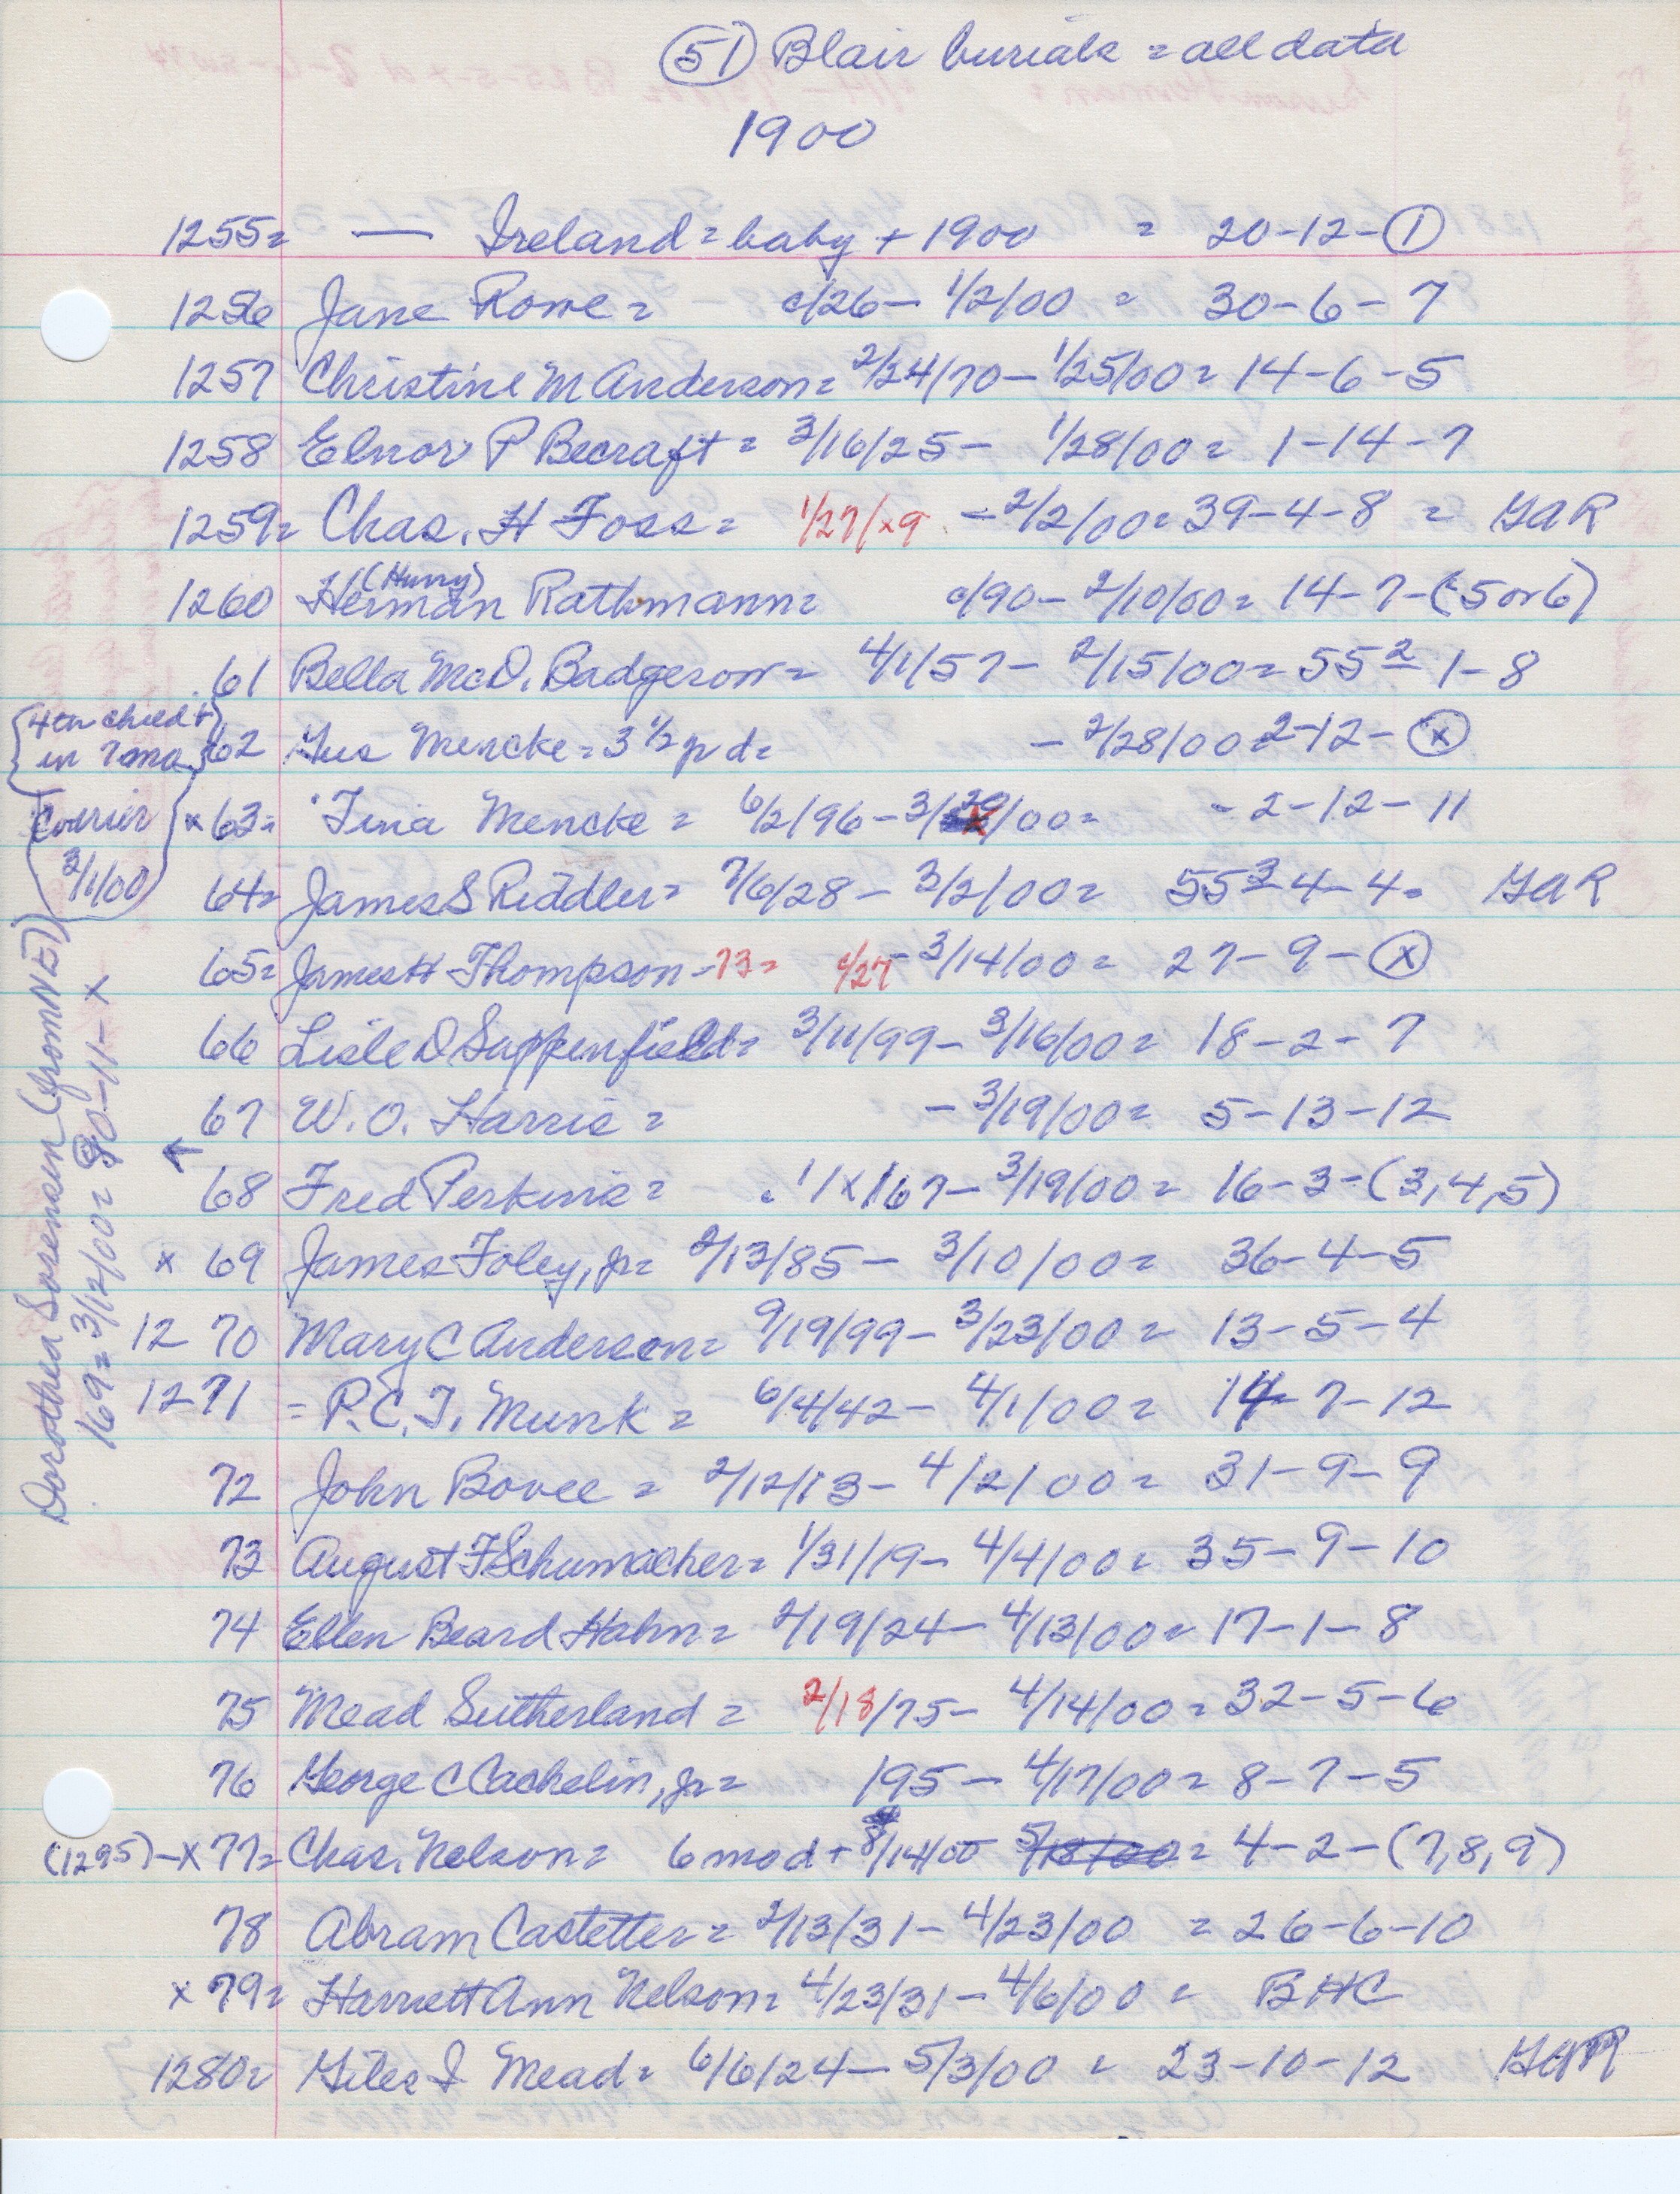 (51) Blair burials = all data
1900
1255= — Ireland = baby + 1900 = 20-12-(1)
1256 Jane Rowe = c/26- 1/2/00 = 30-6-7
1257 Christine M Anderson= 2/24/70- 1/25/00= 14-6-5
1258 Elnor P Becraft = 3/16/25- 1/28/00= 1-14-7
1259= Chas. H Foss = 1/27/x9 -2/2/00= 39-4-8 = GAR
(Harry)
1260 Herman Rathmann= c/90- 2/10/00= 14-7-(5 or 6)
61 Bella McD. Badgerow= 4/1/57- 2/15/00= 55 2 1-8
{4th child + in 7 mo.} 62 Gus Mencke = 3 1/2 yr d= - 2/28/00=2-12-(x)
x 63= Tina Mencke = 6/2/96-3/00= - 2-12-11
(Courier 3/1/00)
64= James S Riddler= 7/6/28- 3/2/00= 55 3 4-4= GAR
65= James H Thompson-73= c/27- 3/14/00= 27-9-(x)
66 Lisle D Sappenfield= 3/11/99- 3/16/00= 18-2-7
67 W. O. Harris = - 3/19/00= 5-13-12
68 Fred Perkins = 11/x/67- 3/19/00= 16-3-(3,4,5)
x 69 James Foley, Jr= 2/13/85- 3/10/00= 36-4-5
12 70 Mary C Anderson= 9/19/99- 3/23/00= 13-5-4
1271 = P. C. T. Munk = 6/4/42- 4/1/00= 14-7-12
72 John Bovee = 2/12/13- 4/2/00= 31-9-9
73 August F Schumacher= 1/31/19- 4/4/00= 35-9-10
74 Ellen Beard Hahn= 2/19/24- 4/13/00= 17-1-8
75 Mead Sutherland = 2/18/75- 4/14/00= 32-5-6
76 George C Cachelin, Jr= 195- 4/17/00= 8-7-5
(1295)-x 77= Chas. Nelson= 6 mo d + 8/14/00 5/18/00= 4-2-(7,8,9)
78 Abram Castetter= 2/13/31- 4/23/00 = 26-6-10
x 79= Harriett Ann Nelson= 4/23/31- 4/6/00 = BHC
1280= Giles I Mead= 6/6/24- 5/3/00 = 23-10-12 GAR
Dorothea Sorensen (from NE)
169= 3/12/00= 90-11-x